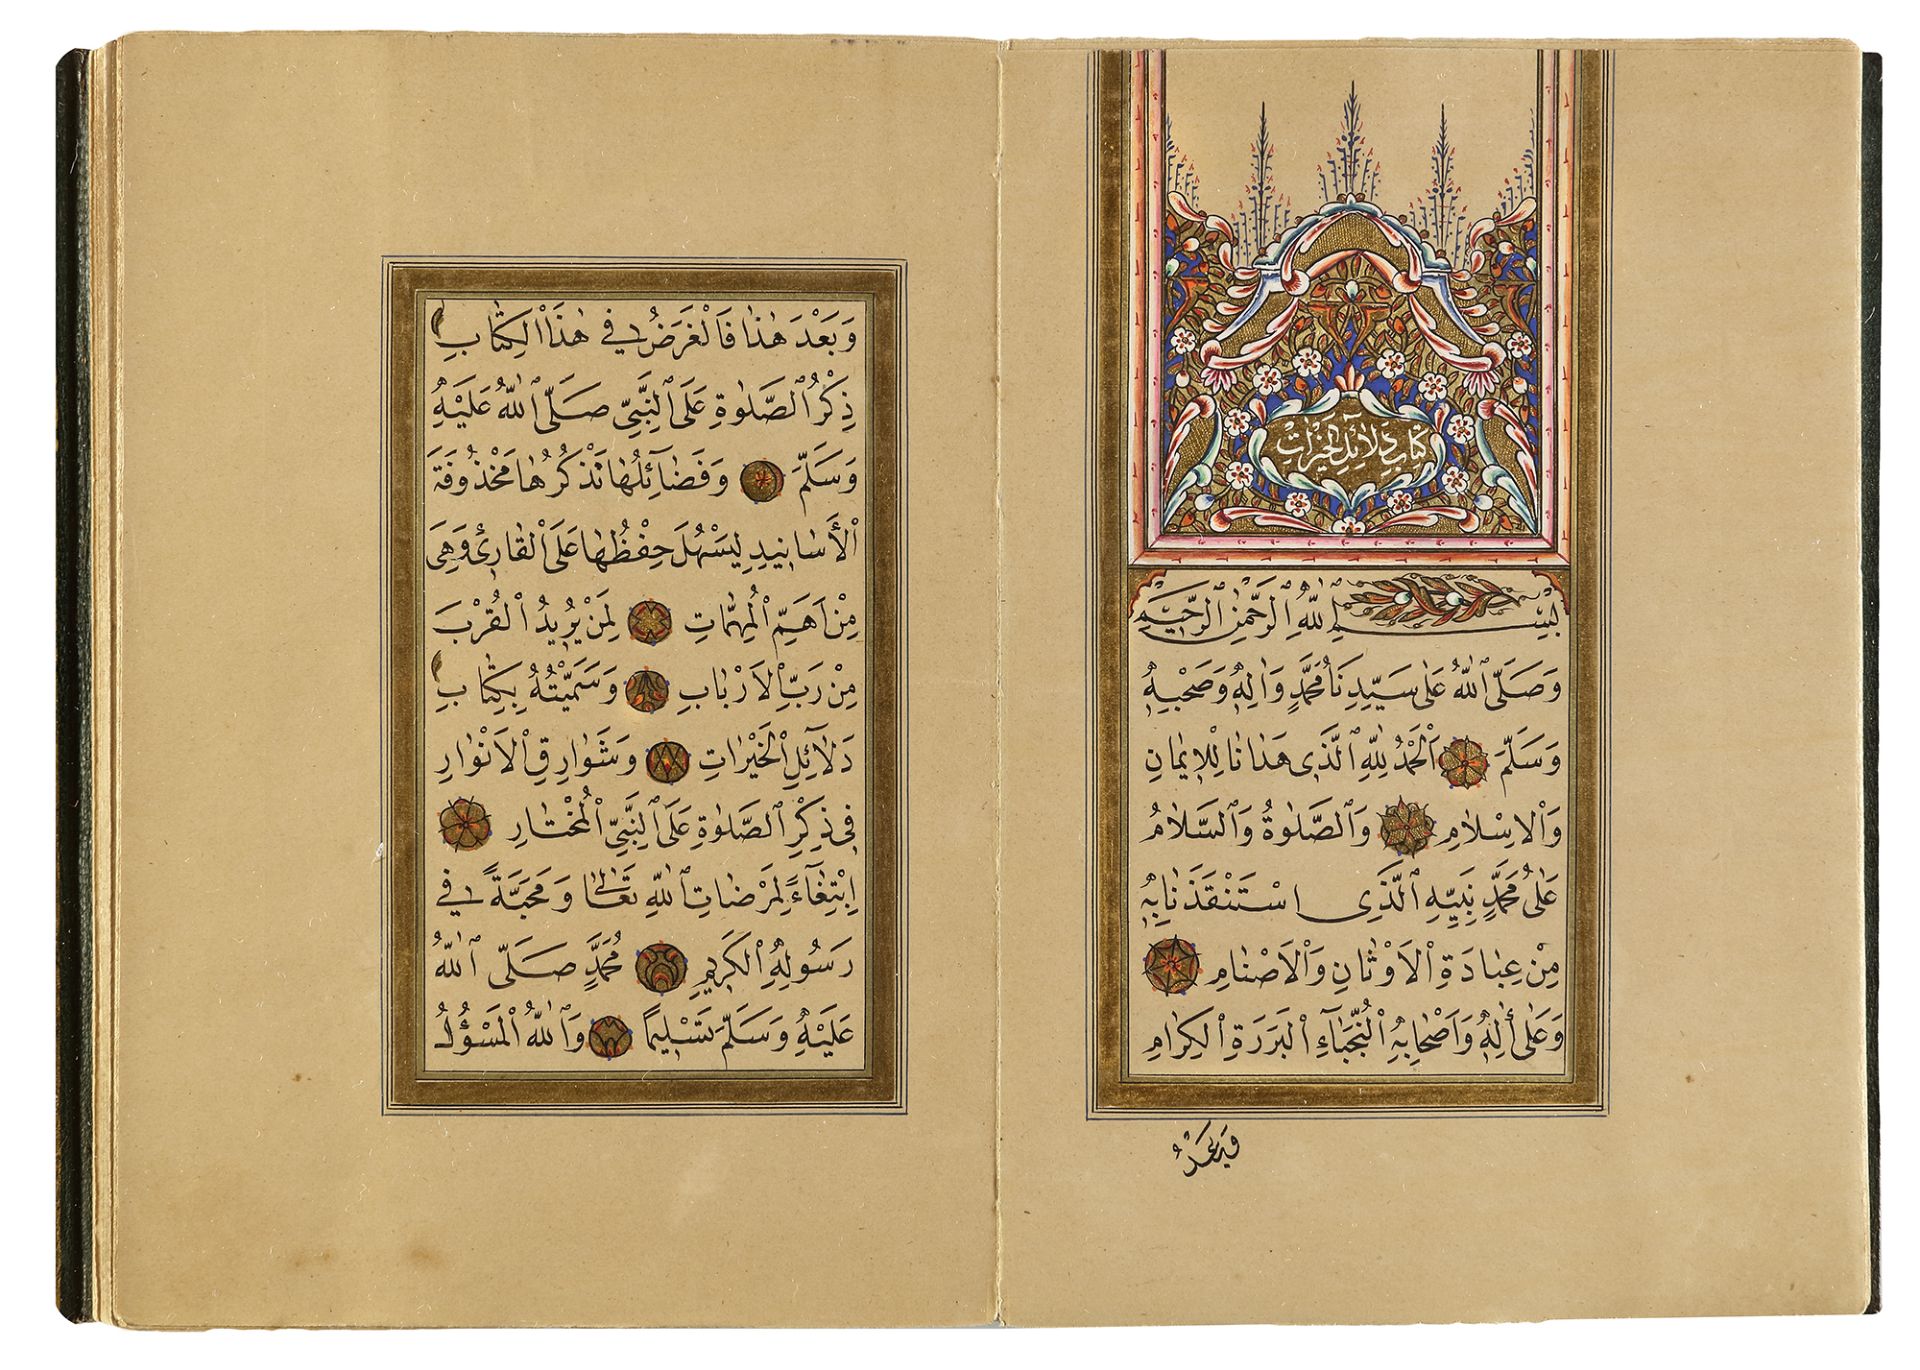 كِتَابِ دَلَائِلِ الْخَيْرَاتِ
بِسْمِ اللّٰهِ الرَّحْمٰنِ الرَّحِيمِ
وَصَلَّى اللّٰهُ عَلٰى سَيِّدِنَا مُحَمَّدٍ وَاٰلِهٖ وَصَحْبِهٖ
وَسَلَّمَ اَلْحَمْدُ لِلّٰهِ الَّذِى هَدَانَا لِلْاِيمَانِ
وَالْاِسْلَامِ وَالصَّلٰوةُ وَالسَّلَامُ
عَلٰى مُحَمَّدٍ نَبِيِّهِ الَّذِى اسْتَنْقَذَنَا بِهٖ
مِنْ عِبَادَةِ الْاَوْثَانِ وَالْاَصْنَامِ
وَعَلٰى اٰلِهٖ وَاَصْحَابِهِ النُّجَبَآءِ الْبَرَرَةِ الْكِرَامِ
وَبَعْدُ
وَبَعْدَ هٰذَا فَالْغَرَضُ فِي هٰذَا الْكِتَابِ
ذِكْرُ الصَّلٰوةِ عَلَى النَّبِيِّ صَلَّى اللّٰهُ عَلَيْهِ
وَسَلَّمَ وَفَضَآئِلُهَا نَذْكُرُهَا مَحْذُوفَةَ
الْأَسَانِيدِ لِيَسْهُلَ حِفْظُهَا عَلَى الْقَارِئِ وَهِىَ
مِنْ اَهَمِّ الْمُهِمَّاتِ لِمَنْ يُرِيدُ الْقُرْبَ
مِنْ رَبِّ الْاَرْبَابِ وَسَمَّيْتُهُ بِكِتَابِ
دَلَآئِلِ الْخَيْرَاتِ وَشَوَارِقِ الْاَنْوَارِ
فِى ذِكْرِ الصَّلٰوةِ عَلَى النَّبِيِّ الْمُخْتَارِ
اِبْتِغَآءً لِمَرْضَاتِ اللّٰهِ تَعَالٰى وَمَحَبَّةً فِي
رَسُولِهِ الْكَرِيمِ مُحَمَّدٍ صَلَّى اللّٰهُ
عَلَيْهِ وَسَلَّمَ تَسْلِيمًا وَاللّٰهُ الْمَسْؤُلُ